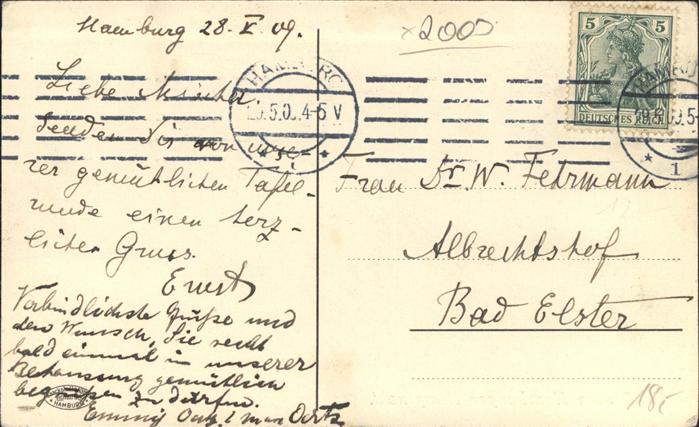 Hamburg 28. V. 09.
Liebe
Senden Dir von uns-
rer gemütlichen Tafel-
runde einen herz-
lichen Gruss.
Ernst
Verbindlichste Grüße und
den Wunsch, Sie recht
bald einmal in unserer
Behausung gemütlich
begrüßen zu dürfen.
Emmy
HAMBURG
×2000
5 5
DEUTSCHES REICH
HAMBURG
29.5.0 4-5 V
* 1
Frau Dr. W. Fehrmann
Albrechtshof
Bad Elster
18,-